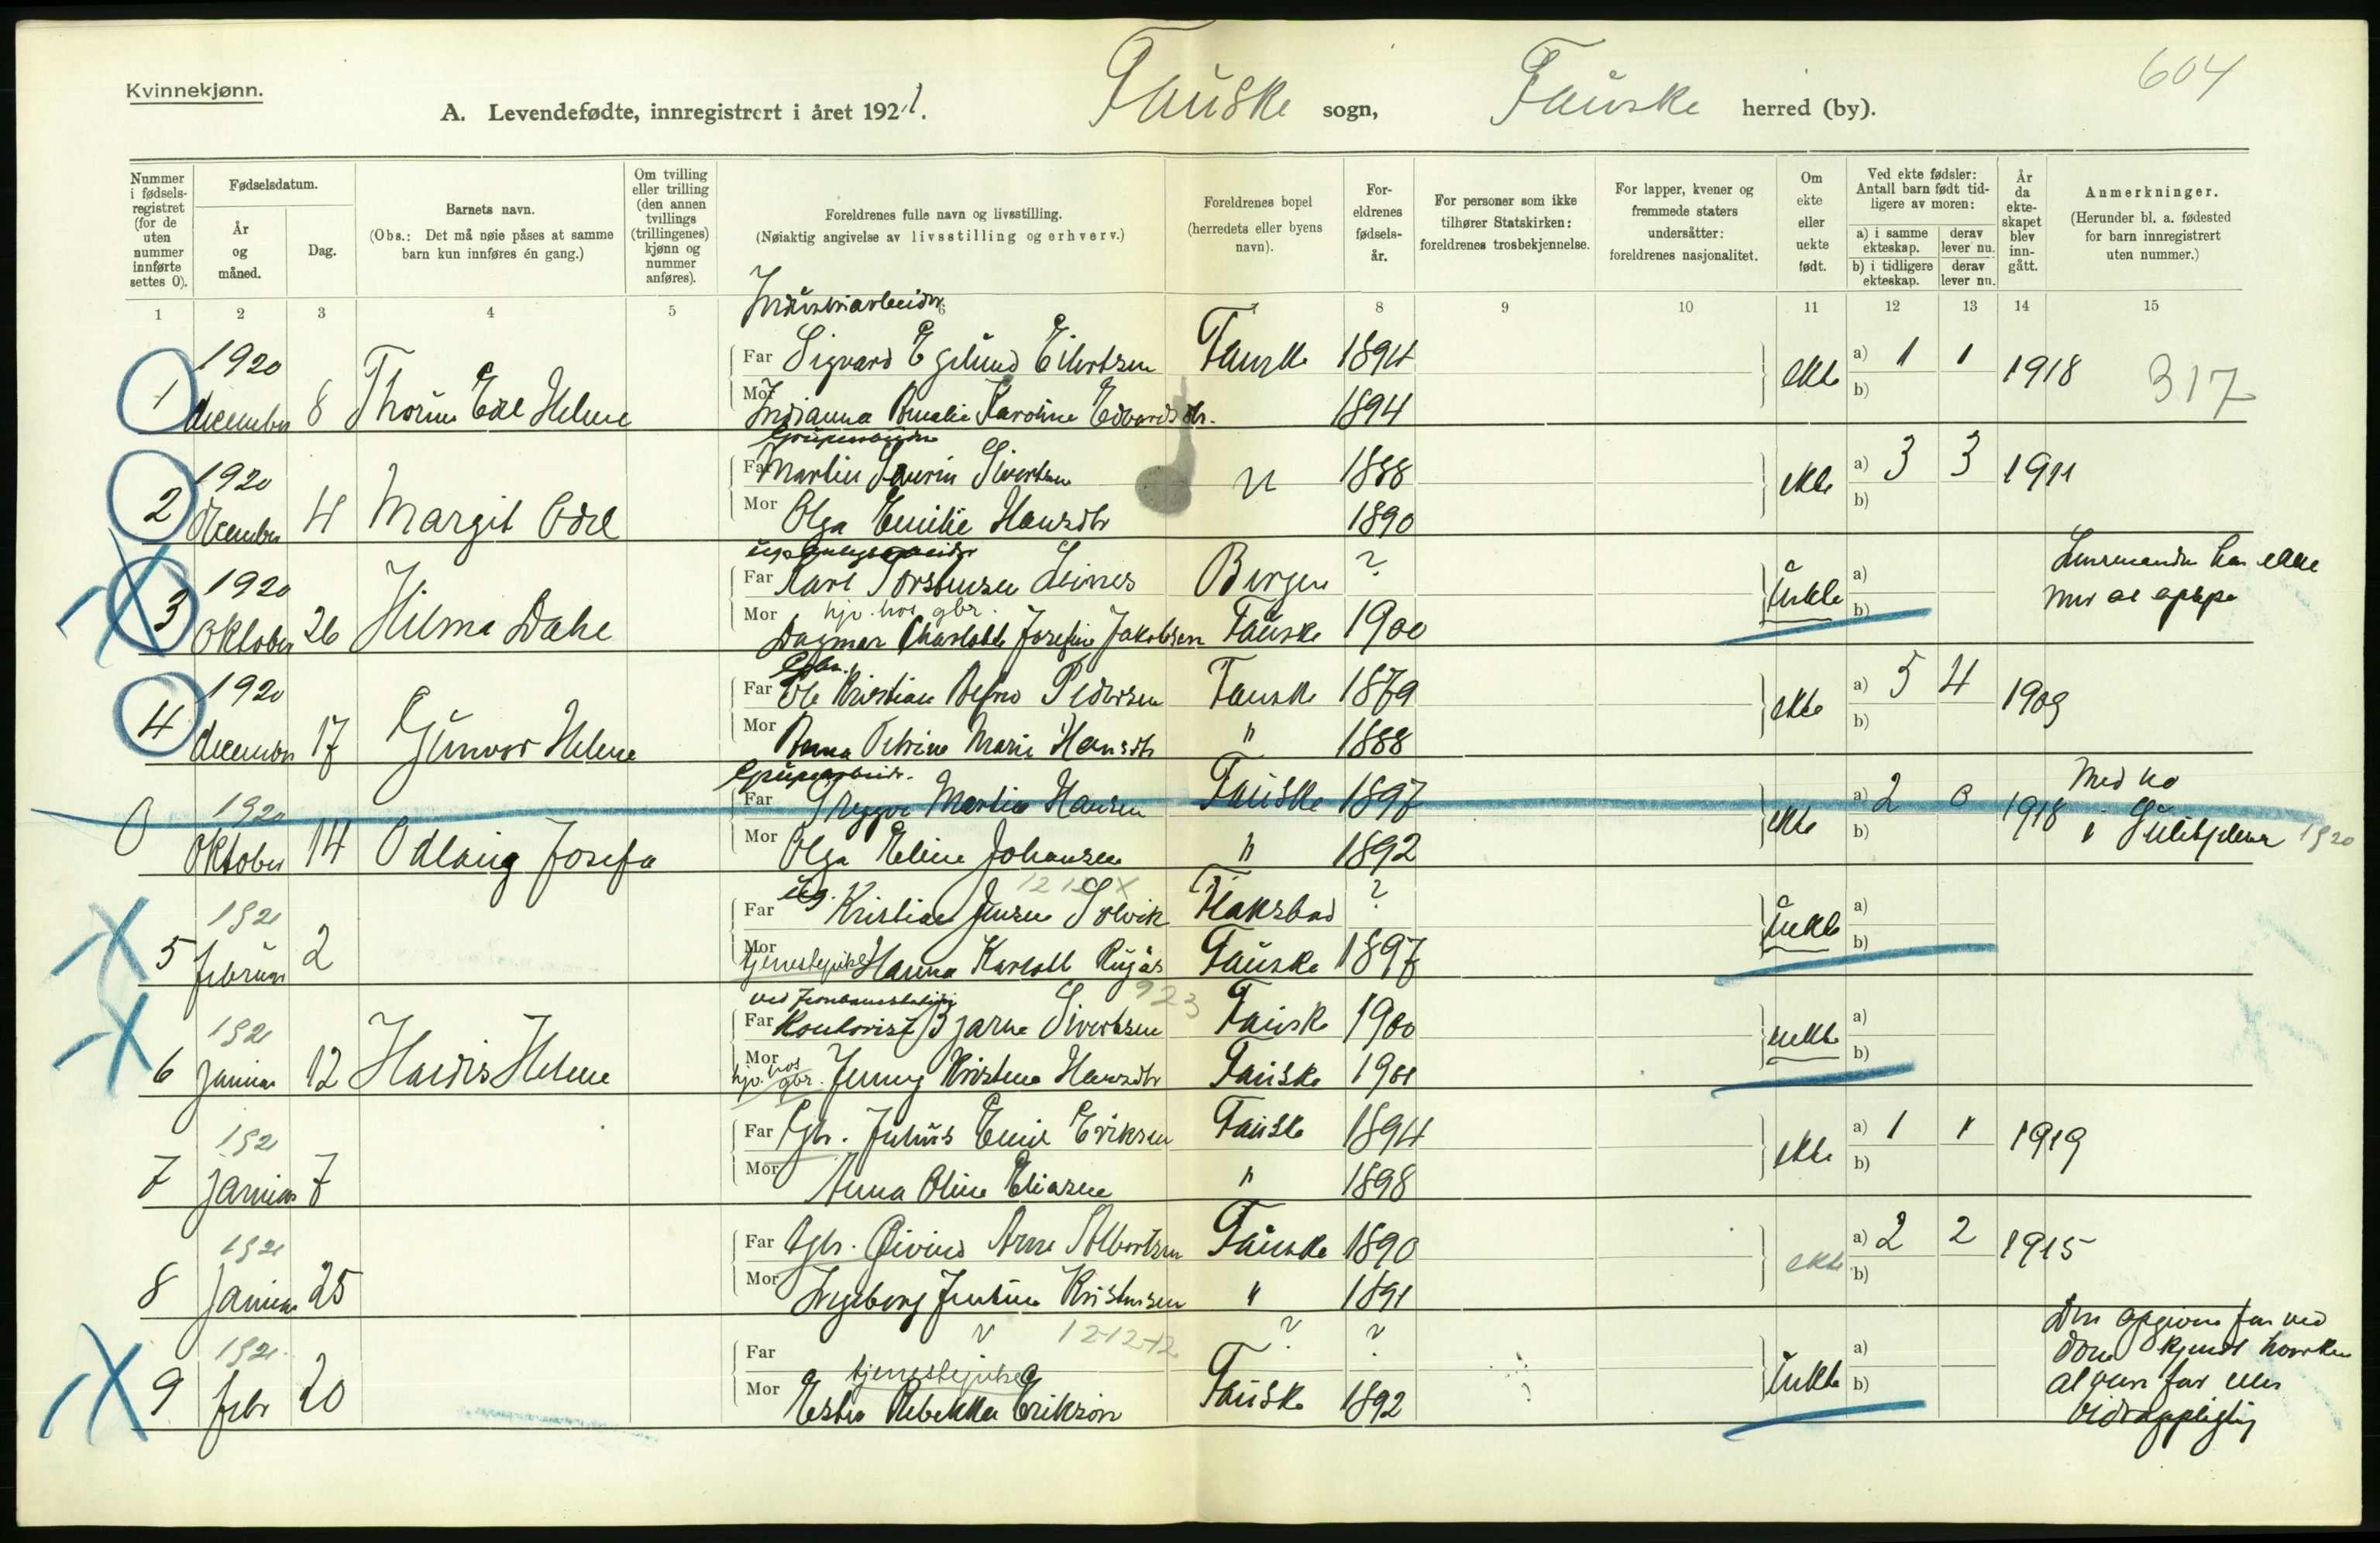 604
Kvinnekjønn.
A. Levendefødte, innregistrert i året 1921. Fauske sogn, Fauske herred (by).
Nummer i fødsels-registret (for de uten nummer innførte settes 0).
Fødselsdatum.
År og måned.
Dag.
Barnets navn.
(Obs.: Det må nøie påses at samme barn kun innføres én gang.)
Om tvilling eller trilling (den annen tvillings (trillingenes) kjønn og nummer anføres).
Foreldrenes fulle navn og livsstilling.
(Nøiaktig angivelse av livsstilling og erhverv.)
Foreldrenes bopel (herredets eller byens navn).
For-eldrenes fødsels-år.
For personer som ikke tilhører Statskirken: foreldrenes trosbekjennelse.
For lapper, kvener og fremmede staters undersåtter: foreldrenes nasjonalitet.
Om ekte eller uekte født.
Ved ekte fødsler: Antall barn født tid-ligere av moren:
a) i samme ekteskap. derav lever nu.
b) i tidligere ekteskap. derav lever nu.
År da ekte-skapet blev inn-gått.
Anmerkninger.
(Herunder bl. a. fødested for barn innregistrert uten nummer.)
1 2 3 4 5 6 8 9 10 11 12 13 14 15
Industriarbeider
1920 Far Sigvard Eglund Eilertsen Fauske 1894 ekte a) 1 1 1918 317
1 december 8 Thorun Edel Helene Mor Indianna Amalie Karoline Edvardsdtr. 1894 b)
Grubearbeider
1920 Far Martin Laurin Sivertsen 1888 ekte a) 3 3 1911
2 December 4 Margit Odel Mor Olga Emilie Hansdtr 1890 b)
1920 Far Karl Torstensen Leines Bergen ? uekte a) Lensmanden har ikke
3 Oktober 26 Hilma Dahl Mor hjv. hos gbr. Dagmar Charlotte Josefine Jakobsen Fauske 1900 b)
Gbr.
1920 Far Ole Kristian Pedersen Fauske 1879 ekte a) 5 4 1909
4 december 17 Gunvor Helene Mor Anna Petrine Marie Hansdtr " 1888 b)
Grubearbeider.
1920 Far Trygve Martin Hansen Fauske 1897 ekte a) 2 0 1918 Med no
0 Oktober 14 Odlaug Josefa Mor Olga Eline Johansen " 1892 b) i Sulitjelma 1920
12 12 X
1921 Far ug. Kristian Jensen Solvik Flakstad ? uekte a)
5 februar 2 Mor tjenestepike Hanna Karlott Rugås Fauske 1897 b)
ved Jernbaneanlægg 923
1921 Far Kontorist Bjarne Sivertsen Fauske 1900 uekte a)
6 januar 12 Hardis Helene Mor hjv. hos gbr. Jenny Kristine Hansdtr Fauske 1901 b)
1921 Far Gbr. Julius Emil Eriksen Fauske 1894 ekte a) 1 1 1919
7 januar 7 Mor Anna Oline Eliasen " 1898 b)
1921 Far Gbr. Øivind Arne Albertsen Fauske 1890 ekte a) 2 2 1915
8 januar 25 Mor Ingeborg Justine Kristensen " 1891 b)
1921 Far ? 12-12-12 ? ? uekte a) Den opgivne far ved
dom kjendt hverken
9 febr 20 Mor tjenestepike Ester Rebekka Erikson Fauske 1892 b) at være far eller
bidragspligtig